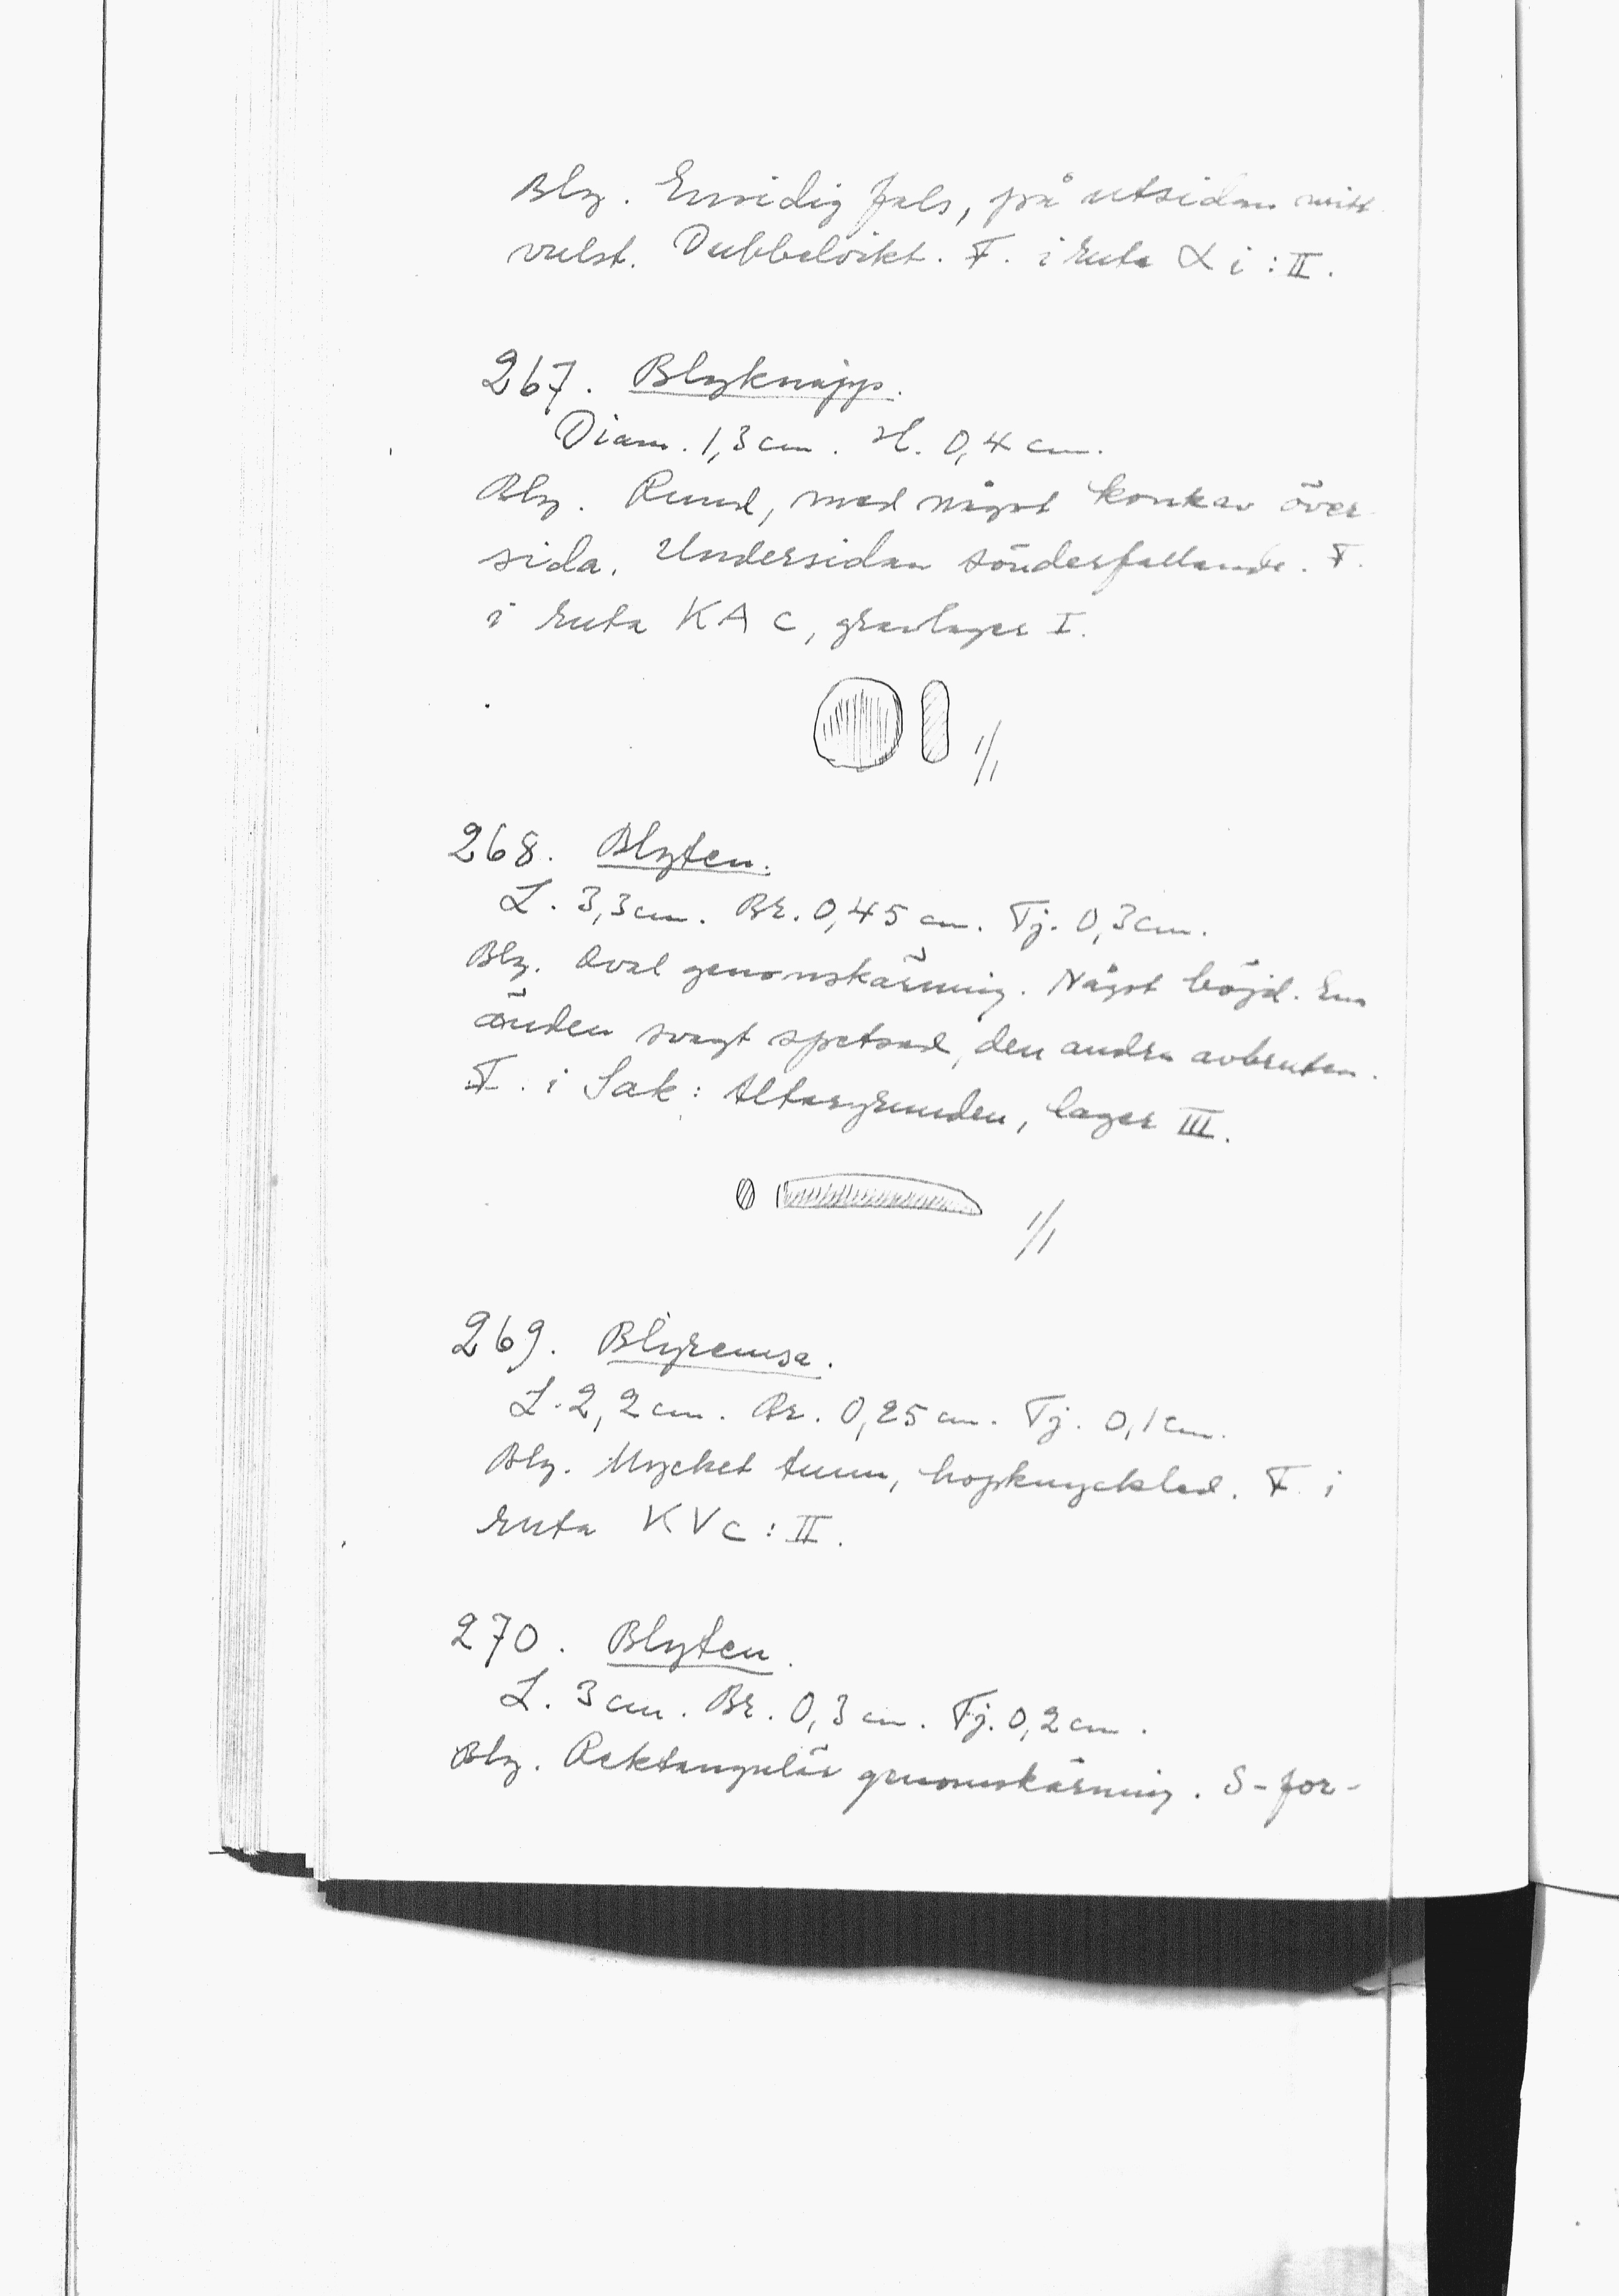 Bly. Ensidig fals, på utsidan mitt
vulst. Dubbelvikt. F. i ruta α i : II.
267. Blyknapp.
Diam. 1,3 cm. H. 0,4 cm.
Bly. Rund, med något konkav över
sida. Undersidan sönderfallande. F.
i ruta KA c, gravlager I.
1/1
268. Blyten.
L. 3,3 cm. Br. 0,45 cm. Tj. 0,3 cm.
Bly. Oval genomskärning. Något böjd. Ena
änden svagt spetsad, den andra avbruten.
F. i Sak : Altargrunden, lager III.
1/1
269. Blyremsa.
L. 2,2 cm. Br. 0,25 cm. Tj. 0,1 cm.
Bly. Mycket tunn, hopknycklad. F. i
ruta KV c : II.
270. Blyten.
L. 3 cm. Br. 0,3 cm. Tj. 0,2 cm.
Bly. Rektangulär genomskärning. S-for-